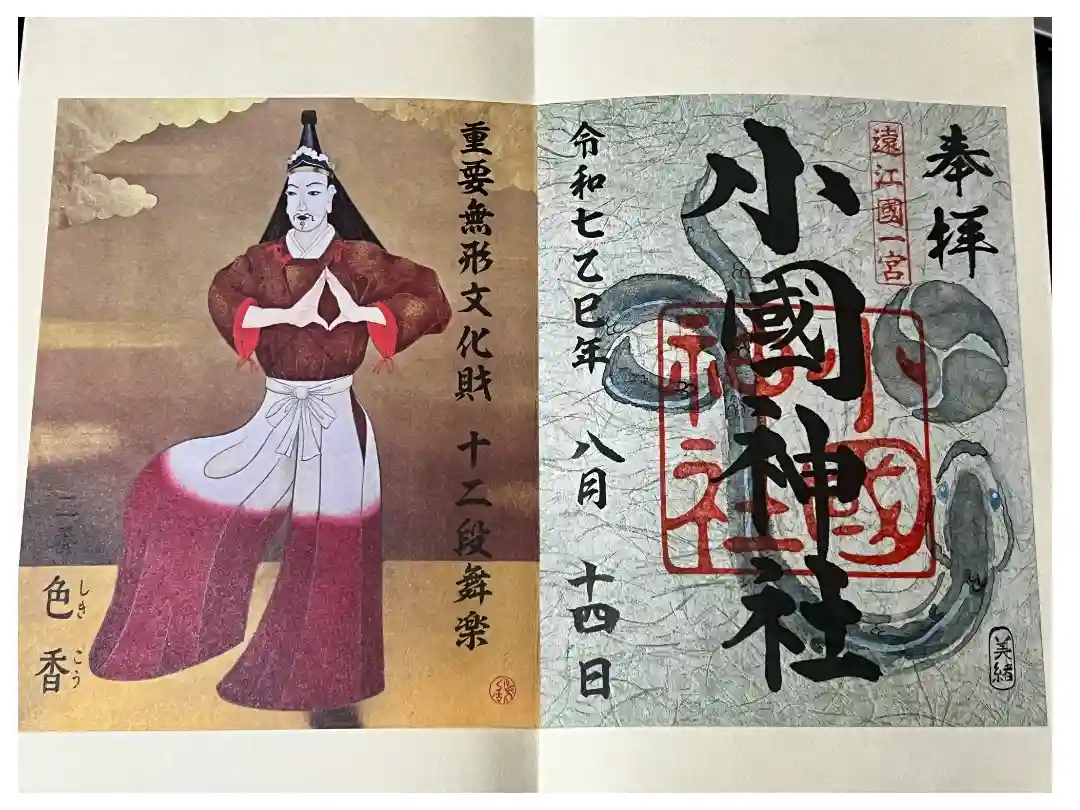 奉拝
遠江國一宮
小國神社
小國神社
令和七乙巳年 八月 十四日
美緒
重要無形文化財 十二段舞楽
二番
色香
しき
こう